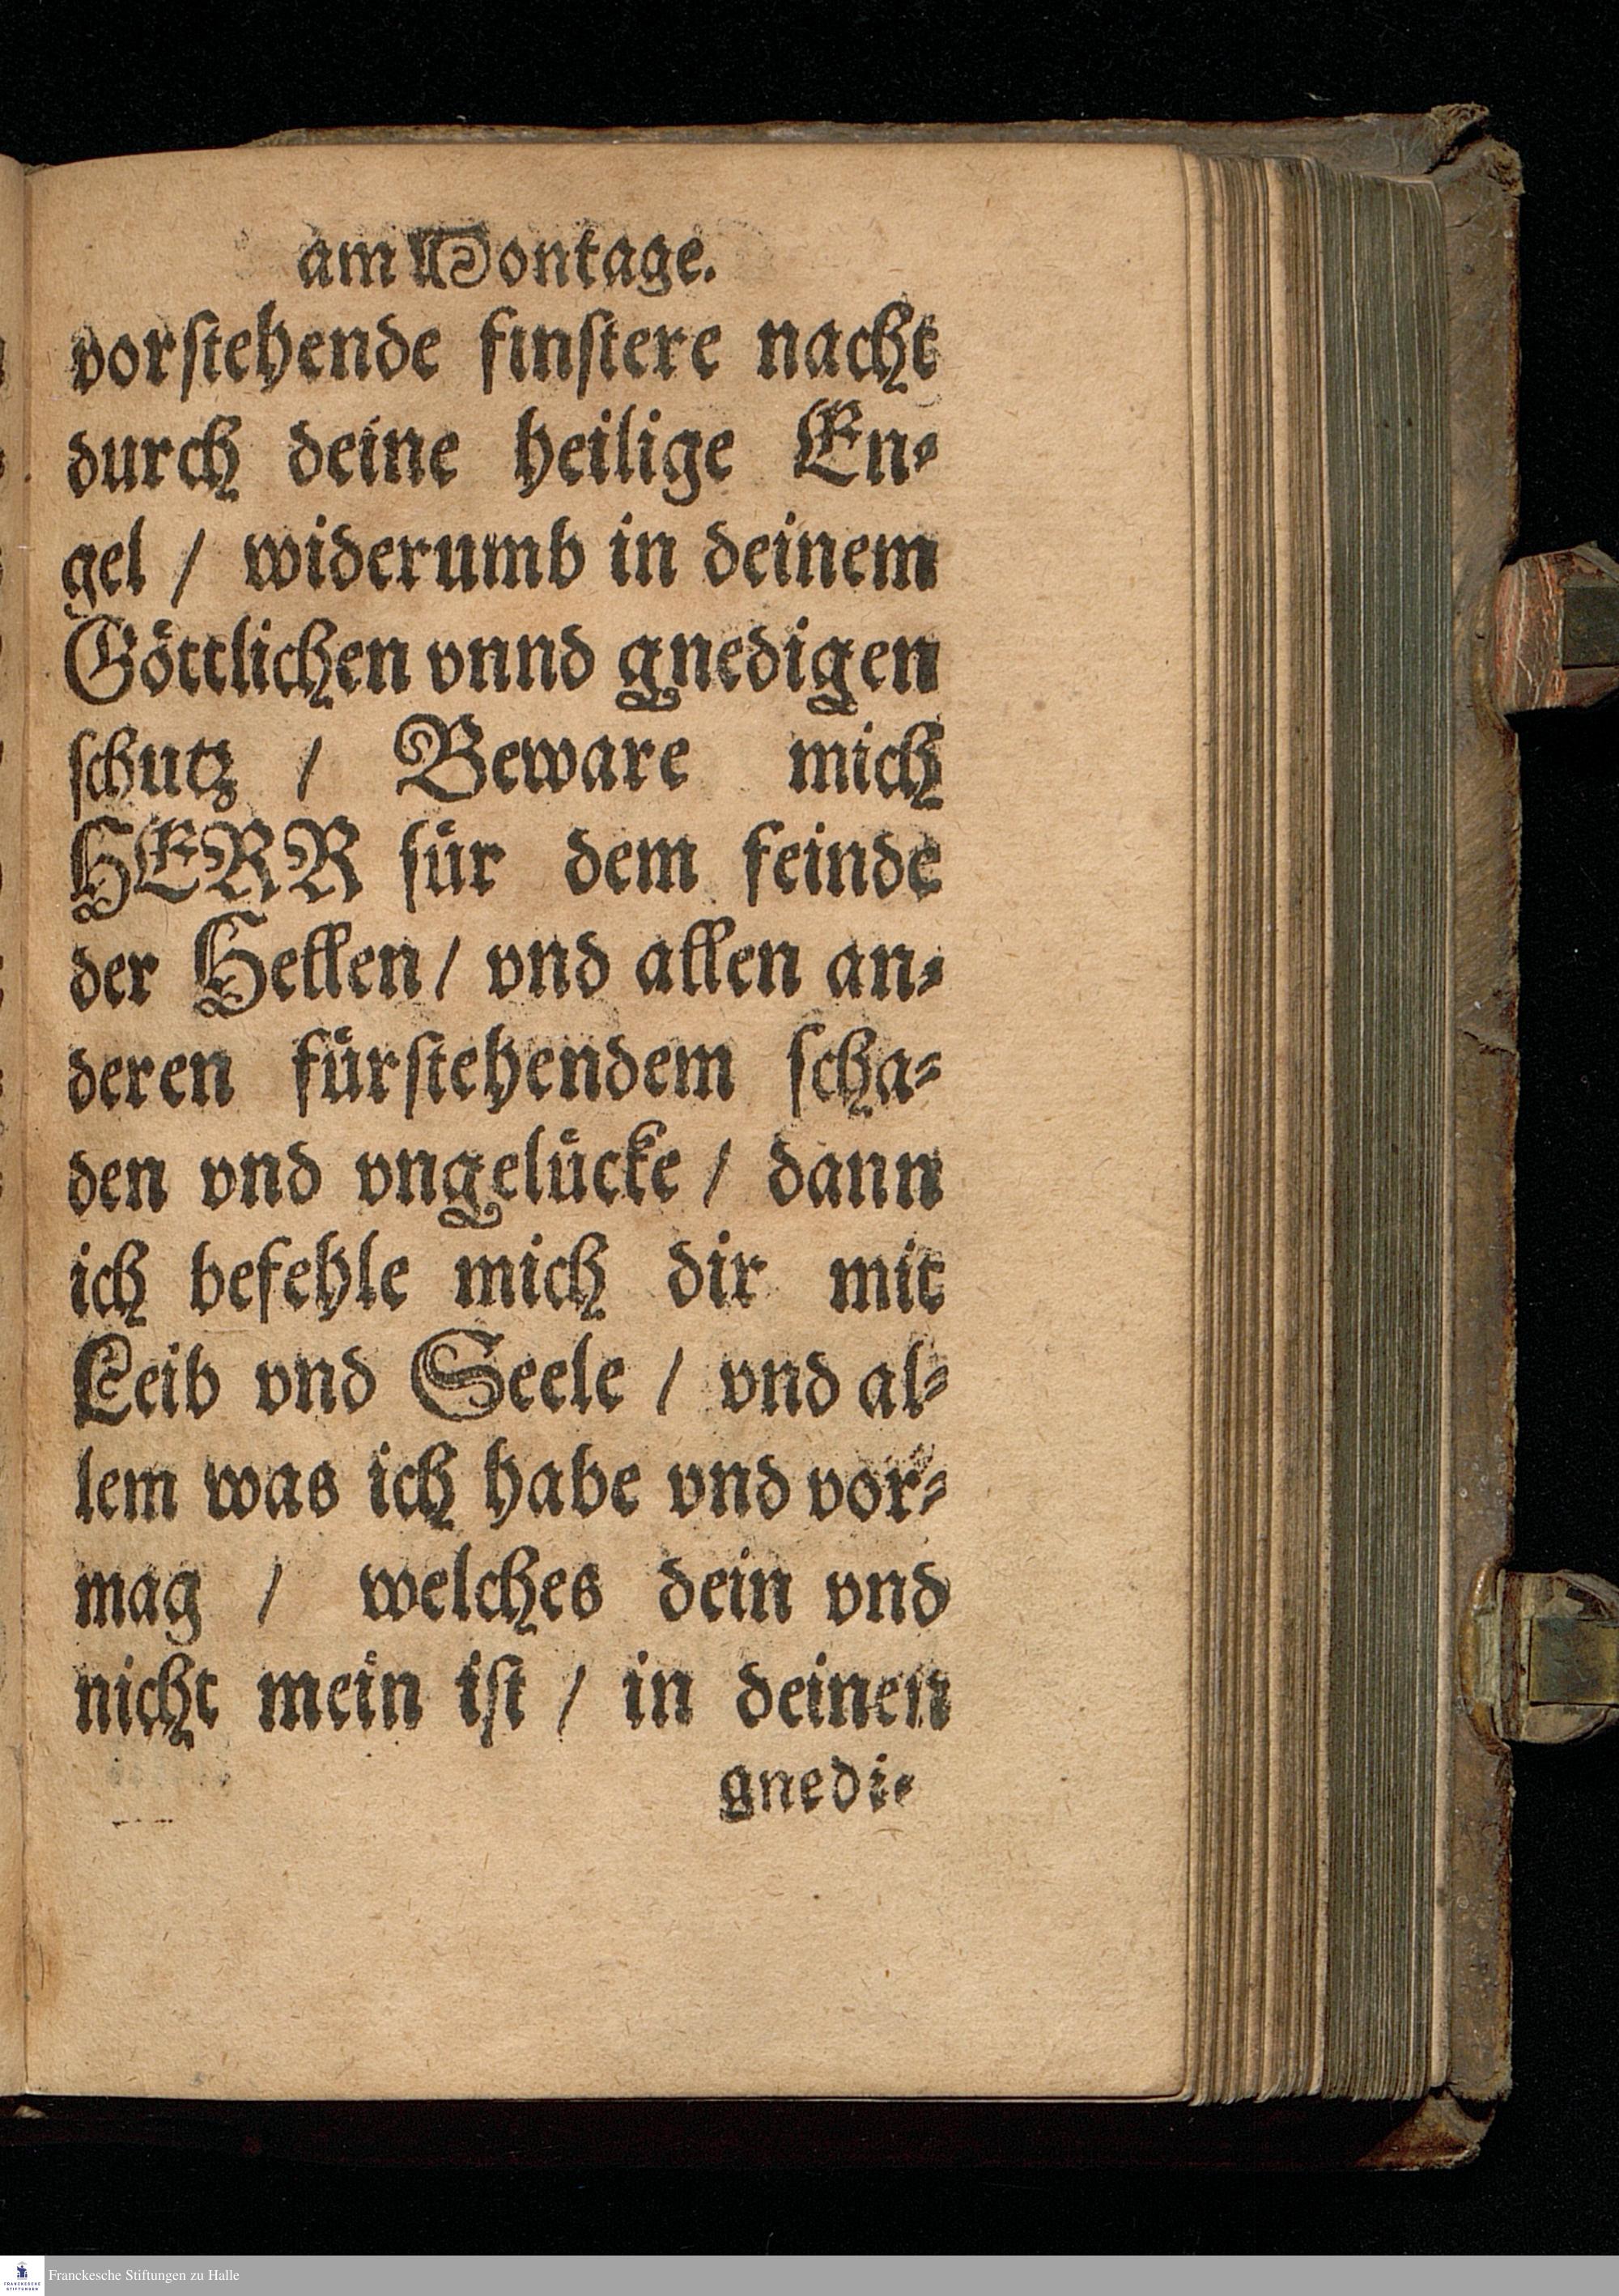 am Montage.
vorſtehende finſtere nacht
durch deine heilige En⸗
gel / widerumb in deinem
Göttlichen vnnd gnedigen
ſchutz / Beware mich
HERR für dem feinde
der Hellen / vnd allen an⸗
deren fürſtehendem ſcha⸗
den vnd vngelücke / dann
ich befehle mich dir mit
Leib vnd Seele / vnd al⸗
lem was ich habe vnd vor⸗
mag / welches dein vnd
nicht mein iſt / in deinen
gnedi⸗
FRANCKESCHE STIFTUNGEN
Franckesche Stiftungen zu Halle